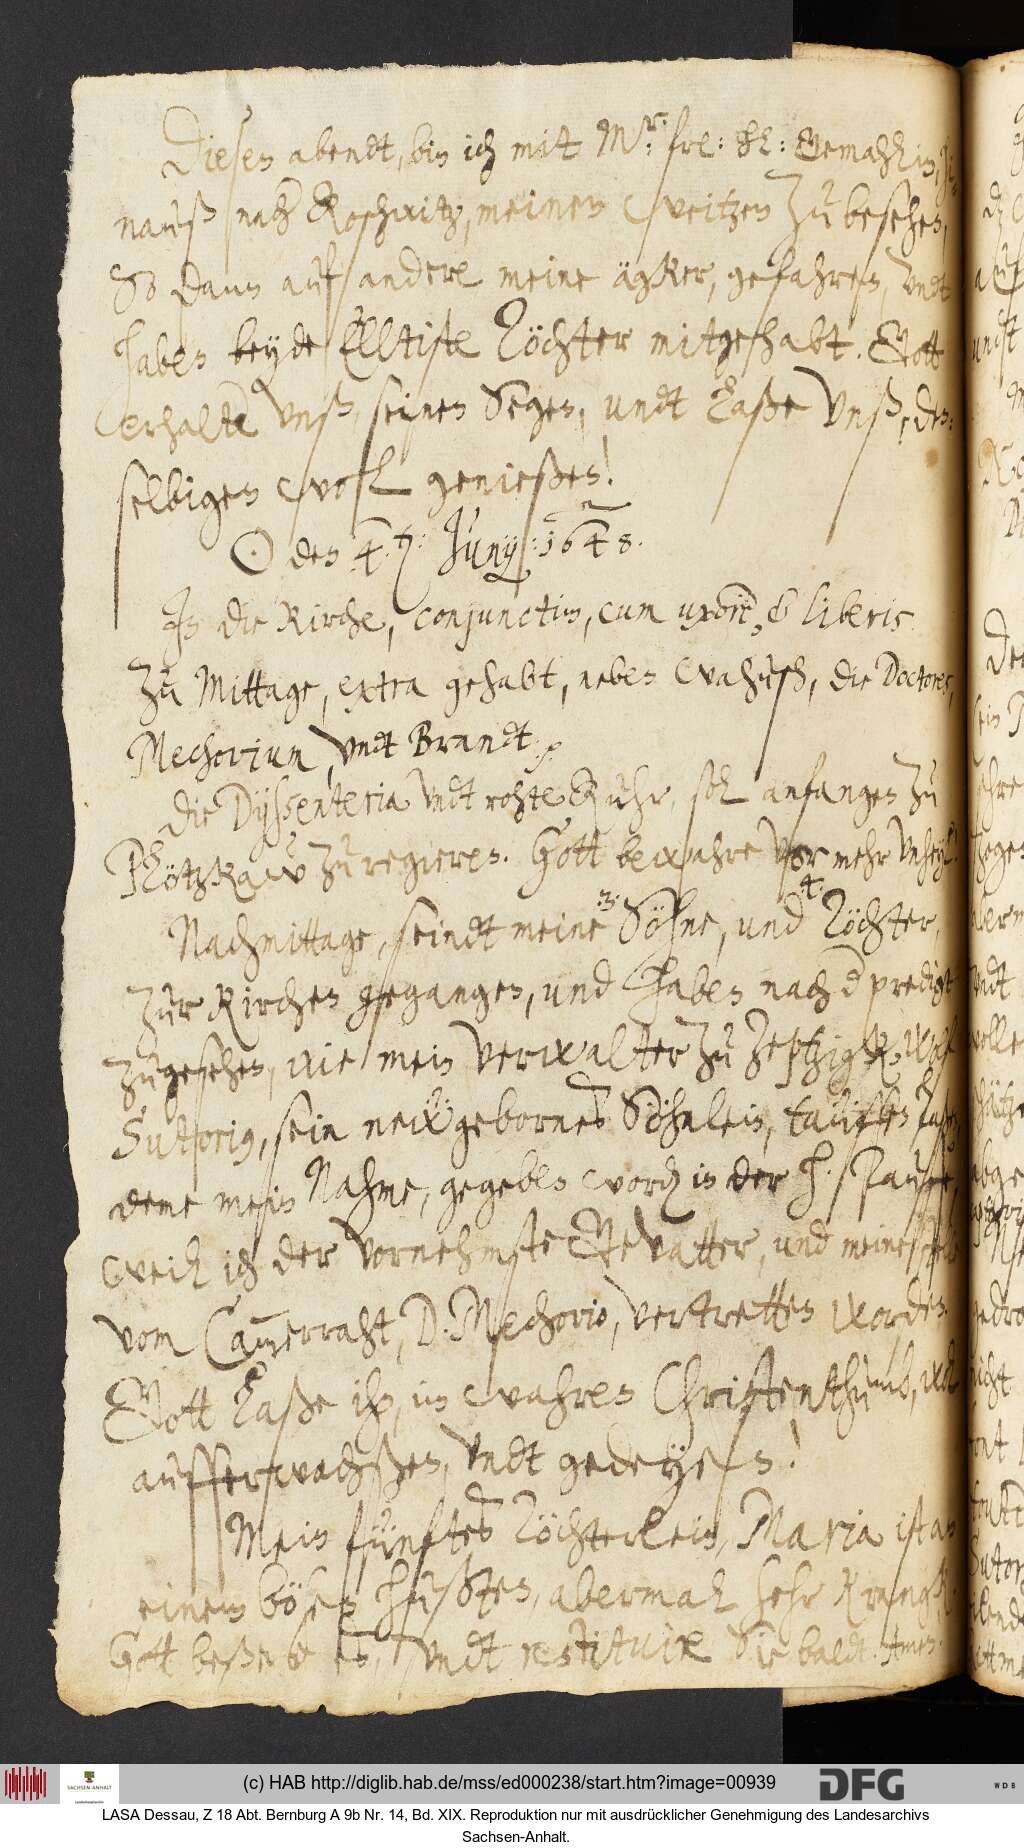 Diesen abendt, bin ich mit Mr: frl: hl: Gemahlin, hi-
nauß nach Roschwitz, meinen Weitzen zu besehen,
So dann auf andere meine ägker, gefahren, undt
haben beyde Elltiste Töchter mitgehabt. Gott
erhalte unß, seinen Segen, undt laße unß, den-
selbigen wohl genießen!
☉ den 4. Junij: 1648.
In die Kirche, conjunctim, cum uxore, & liberis
Zu Mittage, extra gehabt, neben Wahlush, die Doctores,
Mechovium, undt Brandt
Die Dyssenteria undt rohte Ruhr, sol anfangen zu
Plötzkaw zu regieren. Gott bewahre vor mehr unheyl.
Nachmittage, seindt meine :3: Söhne, und :4: Töchter,
zur Kirchen gegangen, und haben nach d predigt
zugesehen, wie mein verwalter zu Zeptzigk, Wolf
Sutorius, sein new gebornes Söhnlein, tauffen laßen,
deme mein Nahme, gegeben worden in der h. Taufe,
weil ich der vornehmste Gevatter, und meine stelle
vom Cammerraht, D. Mechovio, vertretten worden.
Gott laße ihn, in wahrem Christenthumb, wol
aufferwachßen, undt gedeyen!
Mein fünftes Töchterlein, Maria ist an
einem bösen Husten, abermal sehr krangk
Gott beßere es, undt restituire Sie baldt. Amen.
(c) HAB http://diglib.hab.de/mss/ed000238/start.htm?image=00939
SACHSEN-ANHALT
DFG
WDB
LASA Dessau, Z 18 Abt. Bernburg A 9b Nr. 14, Bd. XIX. Reproduktion nur mit ausdrücklicher Genehmigung des Landesarchivs
Sachsen-Anhalt.